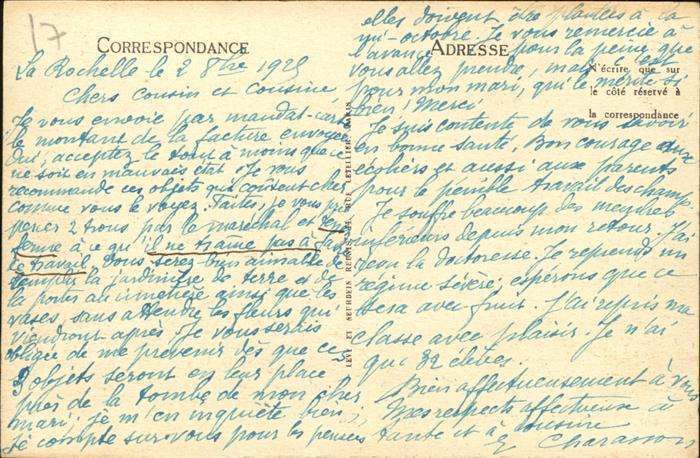 17
CORRESPONDANCE
La Rochelle le 2 8bre 1925
Chers cousin et cousine,
Je vous envoie par mandat-carte
le montant de la facture envoyée
Oui, acceptez le tout à moins que ce
ne soit en mauvais état. Je vous
recommande ces objets qui coûtent cher
comme vous le voyez. Faites, je vous prie
percer 2 trous par le maréchal et
à ce qu'il ne traine pas à faire
le travail. Vous serez bien aimable de
remplir la jardinière de terre et de
la porter au cimetière ainsi que les
vases, sans attendre les fleurs qui
viendront après. Je vous serais
obligée de me prévenir dès que ces
3 objets seront en leur place
près de la tombe de mon cher
mari; je m'en inquiète bien;
je compte sur vous pour les pensées
elles doivent être plantées à la
mi-octobre. Je vous remercie à
l'avance pour la peine que
vous allez prendre, mais c'est
pour mon mari, qui le mérite si
bien! Merci
ADRESSE
N'écrire que sur
le côté réservé à
la correspondance
Je suis contente de vous savoir
en bonne santé, Bon courage aux
écoliers et aussi aux parents
pour le pénible travail des champs.
Je souffre beaucoup des membres
inférieurs depuis mon retour. J'ai
la doctoresse. Je reprends un
régime sévère; espérons que ce
sera avec fruit. J'ai repris ma
classe avec plaisir. Je n'ai
que 32 élèves.
Bien affectueusement à vous
Mes respects affectueux à
tante et à cousine
E Charasson
LEVY ET NEURDEIN REUNIS, 44, RUE LETELLIER, PARIS